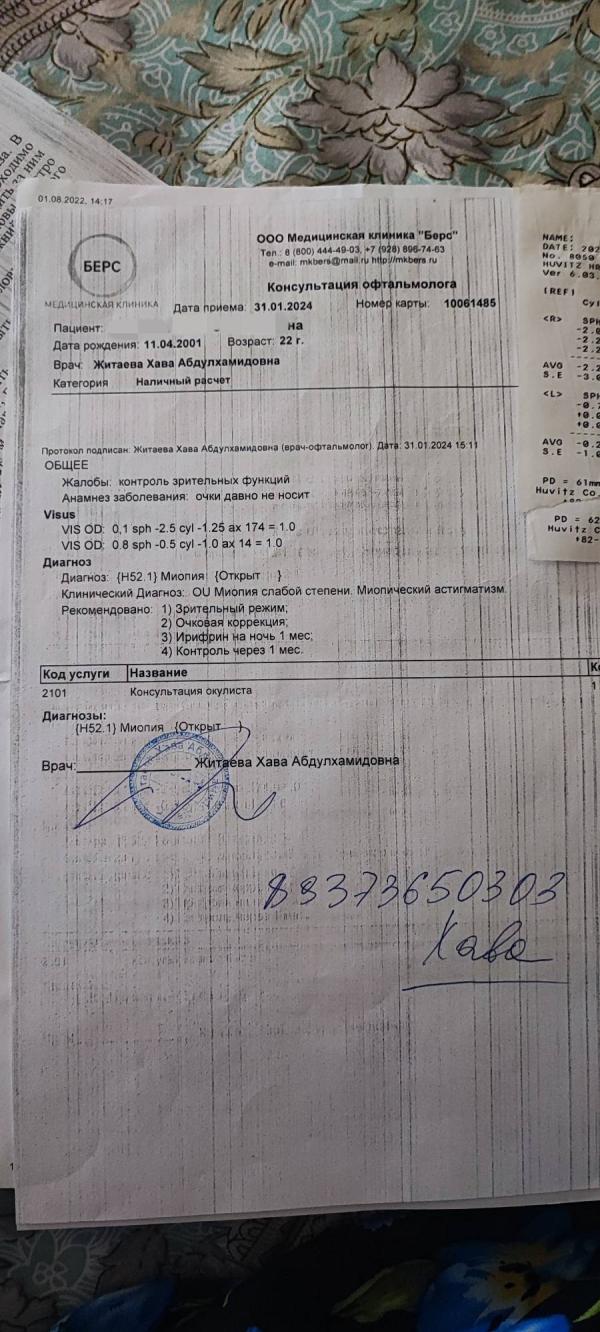 01.08.2022, 14:17
ООО Медицинская клиника "Берс"
Тел.: 8 (800) 444-49-03, +7 (928) 896-74-63
e-mail: mkbers@mail.ru http://mkbers.ru
БЕРС
МЕДИЦИНСКАЯ КЛИНИКА
Консультация офтальмолога
Дата приема: 31.01.2024 Номер карты: 10061485
Пациент: на
Дата рождения: 11.04.2001 Возраст: 22 г.
Врач: Житаева Хава Абдулхамидовна
Категория Наличный расчет
Протокол подписан: Житаева Хава Абдулхамидовна (врач-офтальмолог). Дата: 31.01.2024 15:11
ОБЩЕЕ
Жалобы: контроль зрительных функций
Анамнез заболевания: очки давно не носит
Visus
VIS OD: 0,1 sph -2.5 cyl -1.25 ax 174 = 1.0
VIS OD: 0.8 sph -0.5 cyl -1.0 ax 14 = 1.0
Диагноз
Диагноз: {H52.1} Миопия {Открыт }
Клинический Диагноз: OU Миопия слабой степени. Миопический астигматизм.
Рекомендовано: 1) Зрительный режим;
2) Очковая коррекция;
3) Ирифрин на ночь 1 мес;
4) Контроль через 1 мес.
Код услуги Название
2101 Консультация окулиста 1
Диагнозы:
{H52.1} Миопия {Открыт }
Врач: Житаева Хава Абдулхамидовна
89373650303
Хава
NAME:
DATE: 202
No. 8050
HUVITZ HR
Ver 6.03.
[REF]
Cyl
<R> SPH
-2.0
-2.2
-2.2
AVG -2.2
S.E -3.0
<L> SPH
-0.
+0.0
+0.0
AVG -0.2
S.E -1.0
PD = 61mm
Huvitz Co.
PD = 62
Huvitz C
+82-